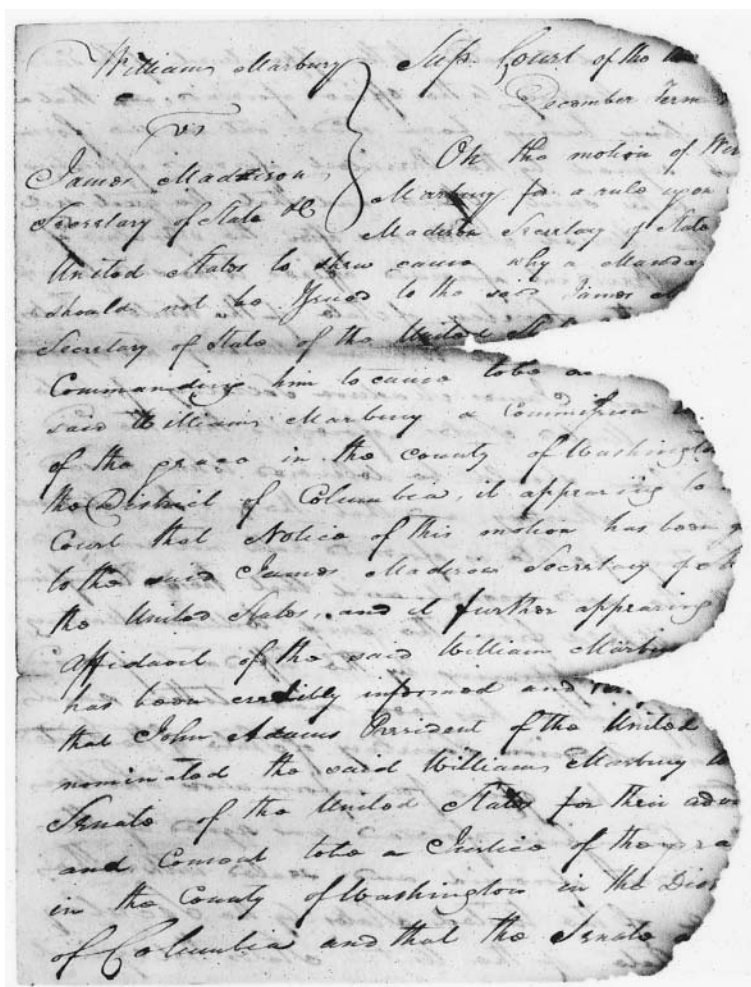 William Marbury
vs
James Maddison
Secretary of State &c
Sup. Court of the
December Term
On the motion of
Marbury for a rule upon
Madison Secretary of State
United States to shew cause why a
should not be Issued to the said James
Secretary of State of the United
Commanding him to cause to be
said William Marbury a Commission
of the peace in the county of Washington
the District of Columbia, it appearing to
Court that Notice of this motion has been
to the said James Madison Secretary of
the United States, and it further appearing
Affidavit of the said William
has been credibly informed and
that John Adams President of the United
nominated the said William Marbury
Senate of the United States for their
and Consent to be a Justice of the
in the County of Washington in the
of Columbia and that the Senate